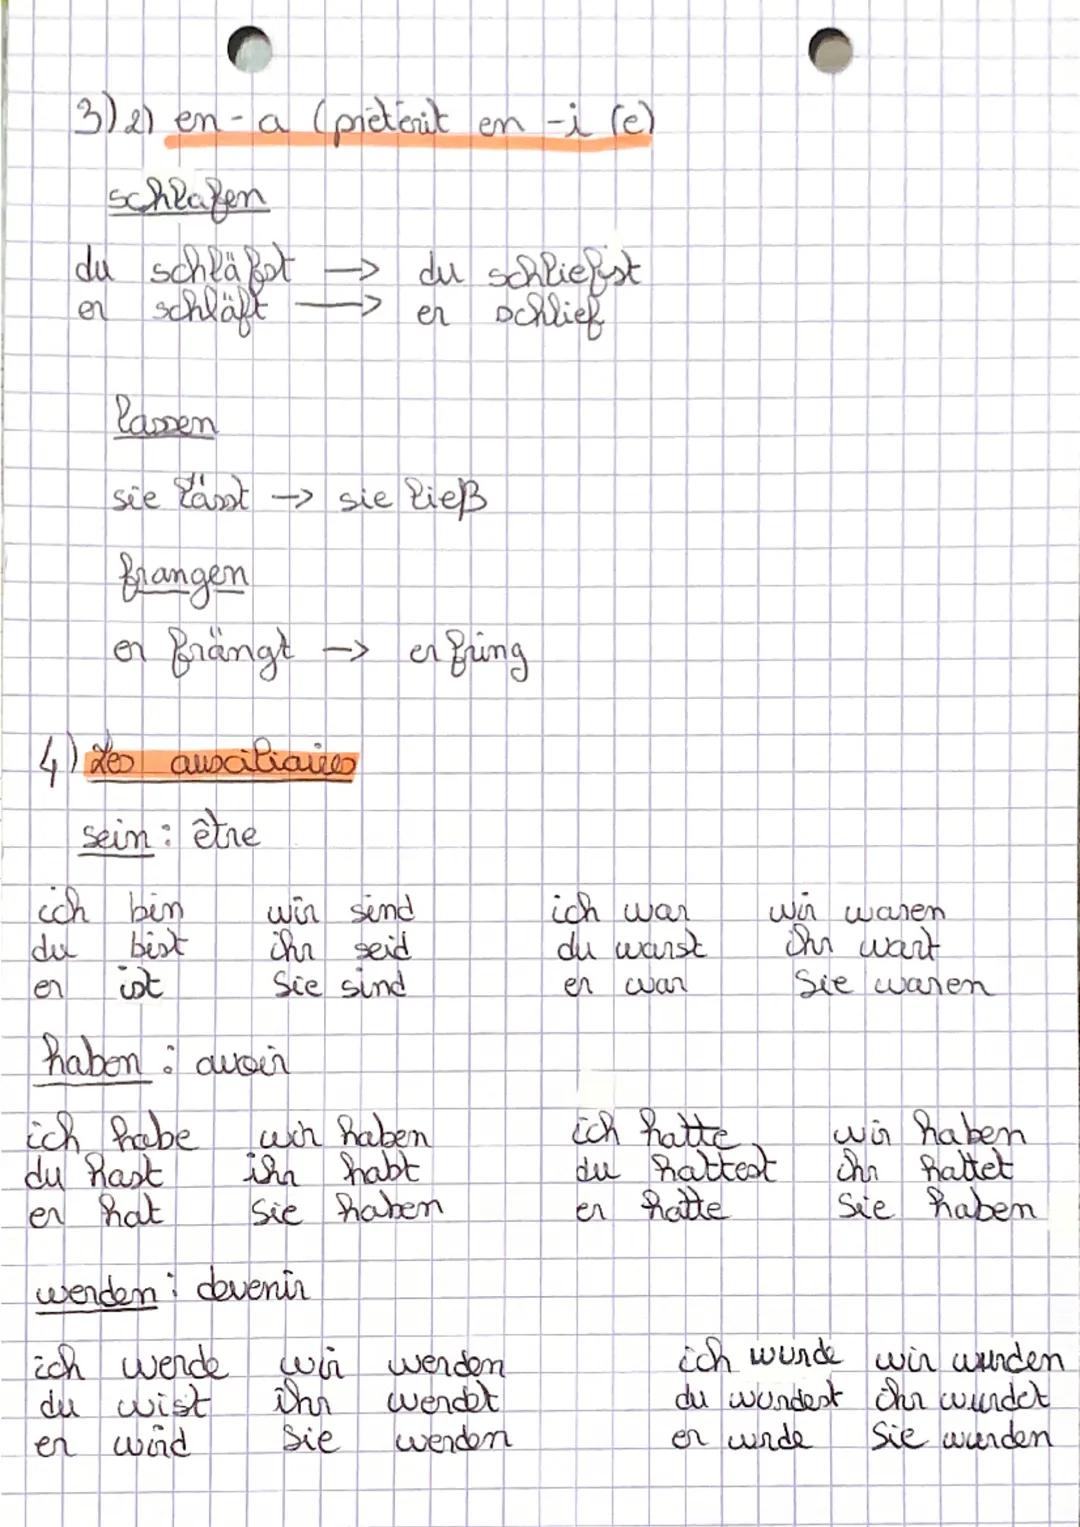 3) 2) en - a (prétérit en -i (e)
schlafen
du schläfst → du schliefst
er schläft → er schlief
lassen
sie lässt → sie ließ
frangen
er frängt → er fring
4) Les auxiliaires
sein : être
ich bin wir sind ich war wir waren
du bist ihr seid du warst ihr wart
er ist Sie sind er war Sie waren
haben : avoir
ich habe wir haben ich hatte wir haben
du hast ihr habt du hattest ihr hattet
er hat Sie haben er hatte Sie haben
werden : devenir
ich werde wir werden ich wurde wir wurden
du wist ihr werdet du wurdest ihr wurdet
er wird Sie werden er wurde Sie wurden